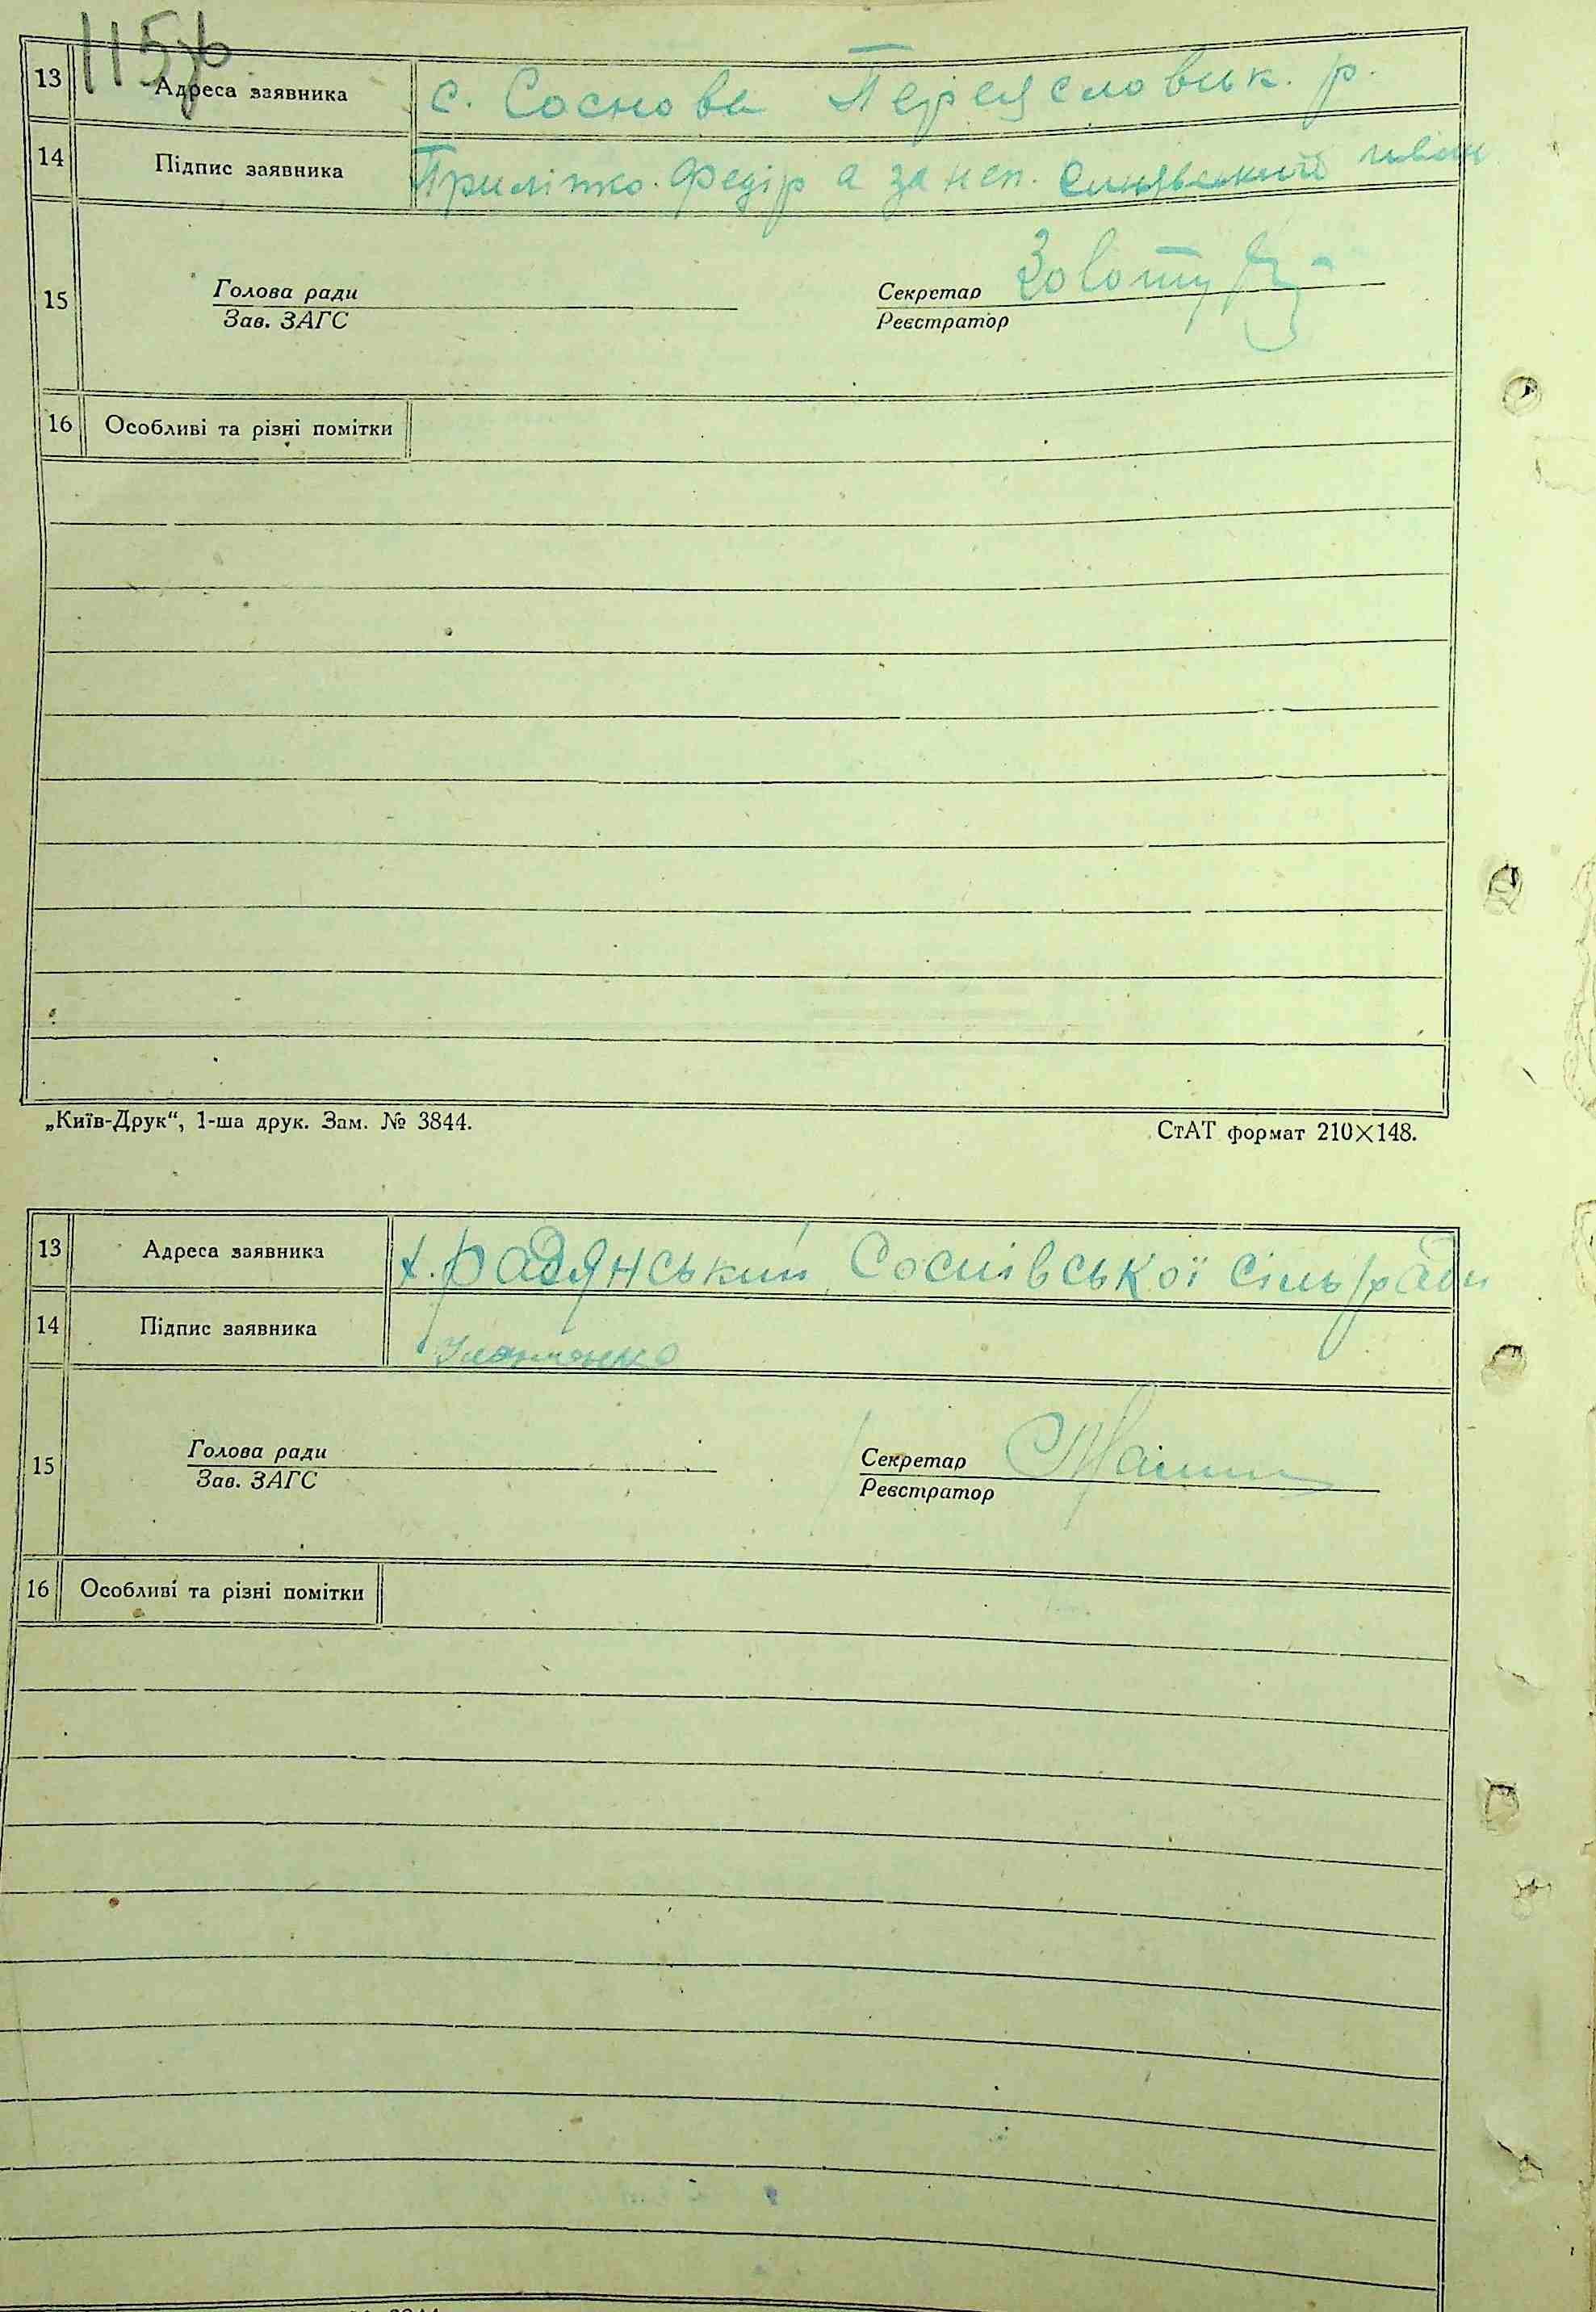 115зв
13 Адреса заявника с. Соснова Переяславськ. р.
14 Підпис заявника Приліпко. Федір а за неп. Синявський иван
15 Голова ради Секретар
Зав. ЗАГС Реєстратор
16 Особливі та різні помітки
„Київ-Друк“, 1-ша друк. Зам. № 3844. СтАТ формат 210×148.
13 Адреса заявника х. радянський Соснівської сільради
14 Підпис заявника
15 Голова ради Секретар
Зав. ЗАГС Реєстратор
16 Особливі та різні помітки